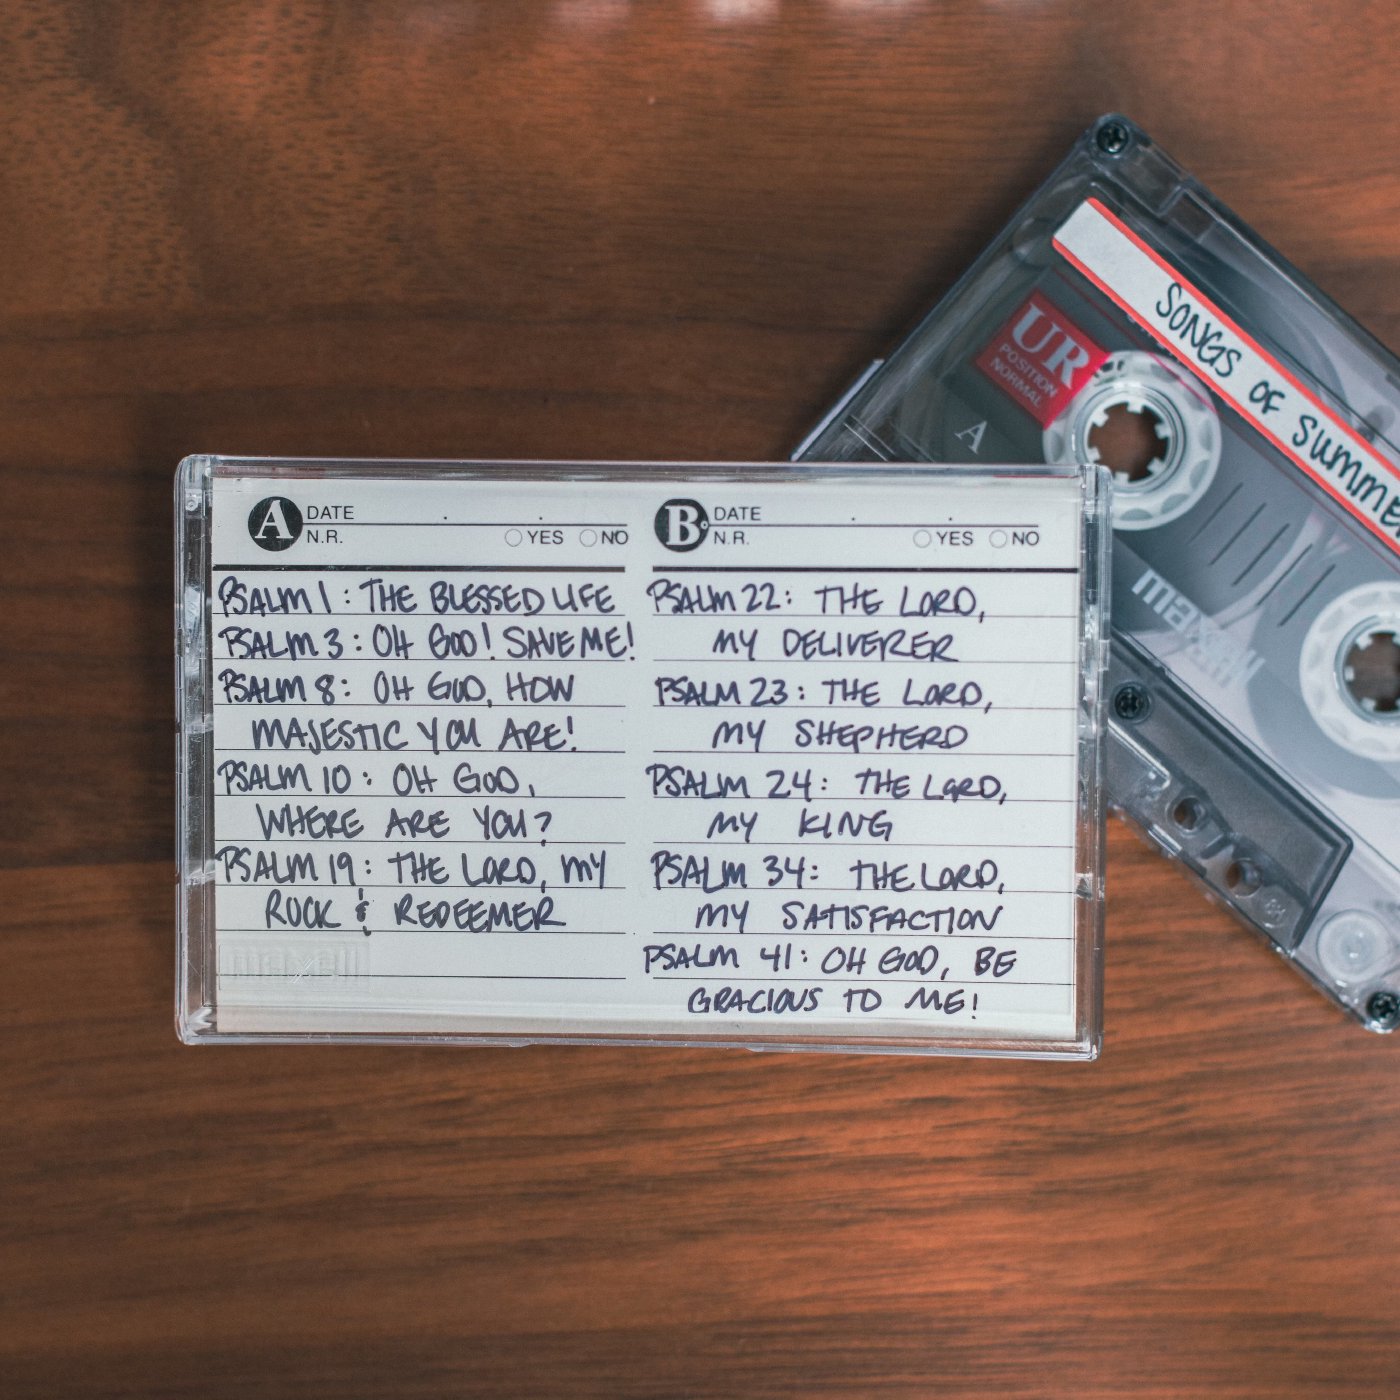 A DATE
N.R. YES NO
PSALM 1: THE BLESSED LIFE
PSALM 3: OH GOD! SAVE ME!
PSALM 8: OH GOD, HOW
MAJESTIC YOU ARE!
PSALM 10: OH GOD,
WHERE ARE YOU?
PSALM 19: THE LORD, MY
ROCK & REDEEMER
maxell
B DATE
N.R. YES NO
PSALM 22: THE LORD,
MY DELIVERER
PSALM 23: THE LORD,
MY SHEPHERD
PSALM 24: THE LORD,
MY KING
PSALM 34: THE LORD,
MY SATISFACTION
PSALM 41: OH GOD, BE
GRACIOUS TO ME!
SONGS OF SUMME
UR
POSITION
NORMAL
A
maxell